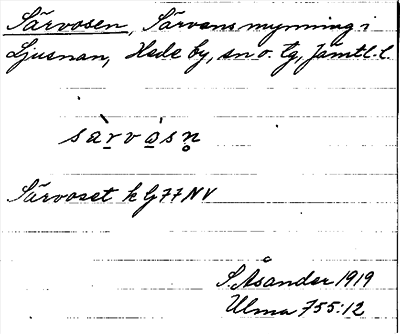 Särvosen, Särvans mynning i
Ljusnan, Hede by, sn o. tg, Jämtl. l.
sàrvásn̥
Särvoset k G77NV
S. Åsander 1919
Ulma 755:12